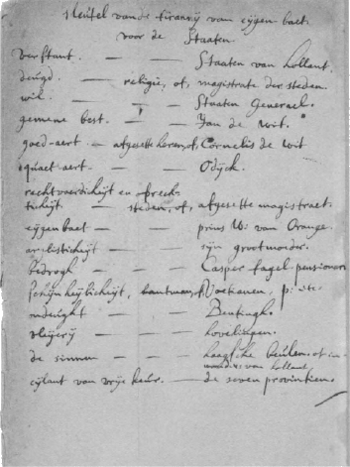 sleutel vande tiranny van eygen baet.
voor de Staaten
verstant. — — Staaten van hollant.
deugd. — religie, of, magistrate der steden
wil. — — Staaten Generael.
gemeene best. — — Jan de wit.
goed-aert. — afgesette heren, of, Cornelis de wit
quaet-aert. — — Odijck.
rechtvaerdicheyt en
— steden, of, afgesette magistraet.
eygenbaet — — prins Wi: van Orange.
— — — sijn grootmoeder.
bedrogh — — — Casper fagel-pensionaris
schijnheylicheyt,
ondeught — — — Bentingh.
vleyery — — — hovelingen.
de sinnen — — haeghsche beulen of in
van hollant.
eylant van vrije keur. — de seven provintien.